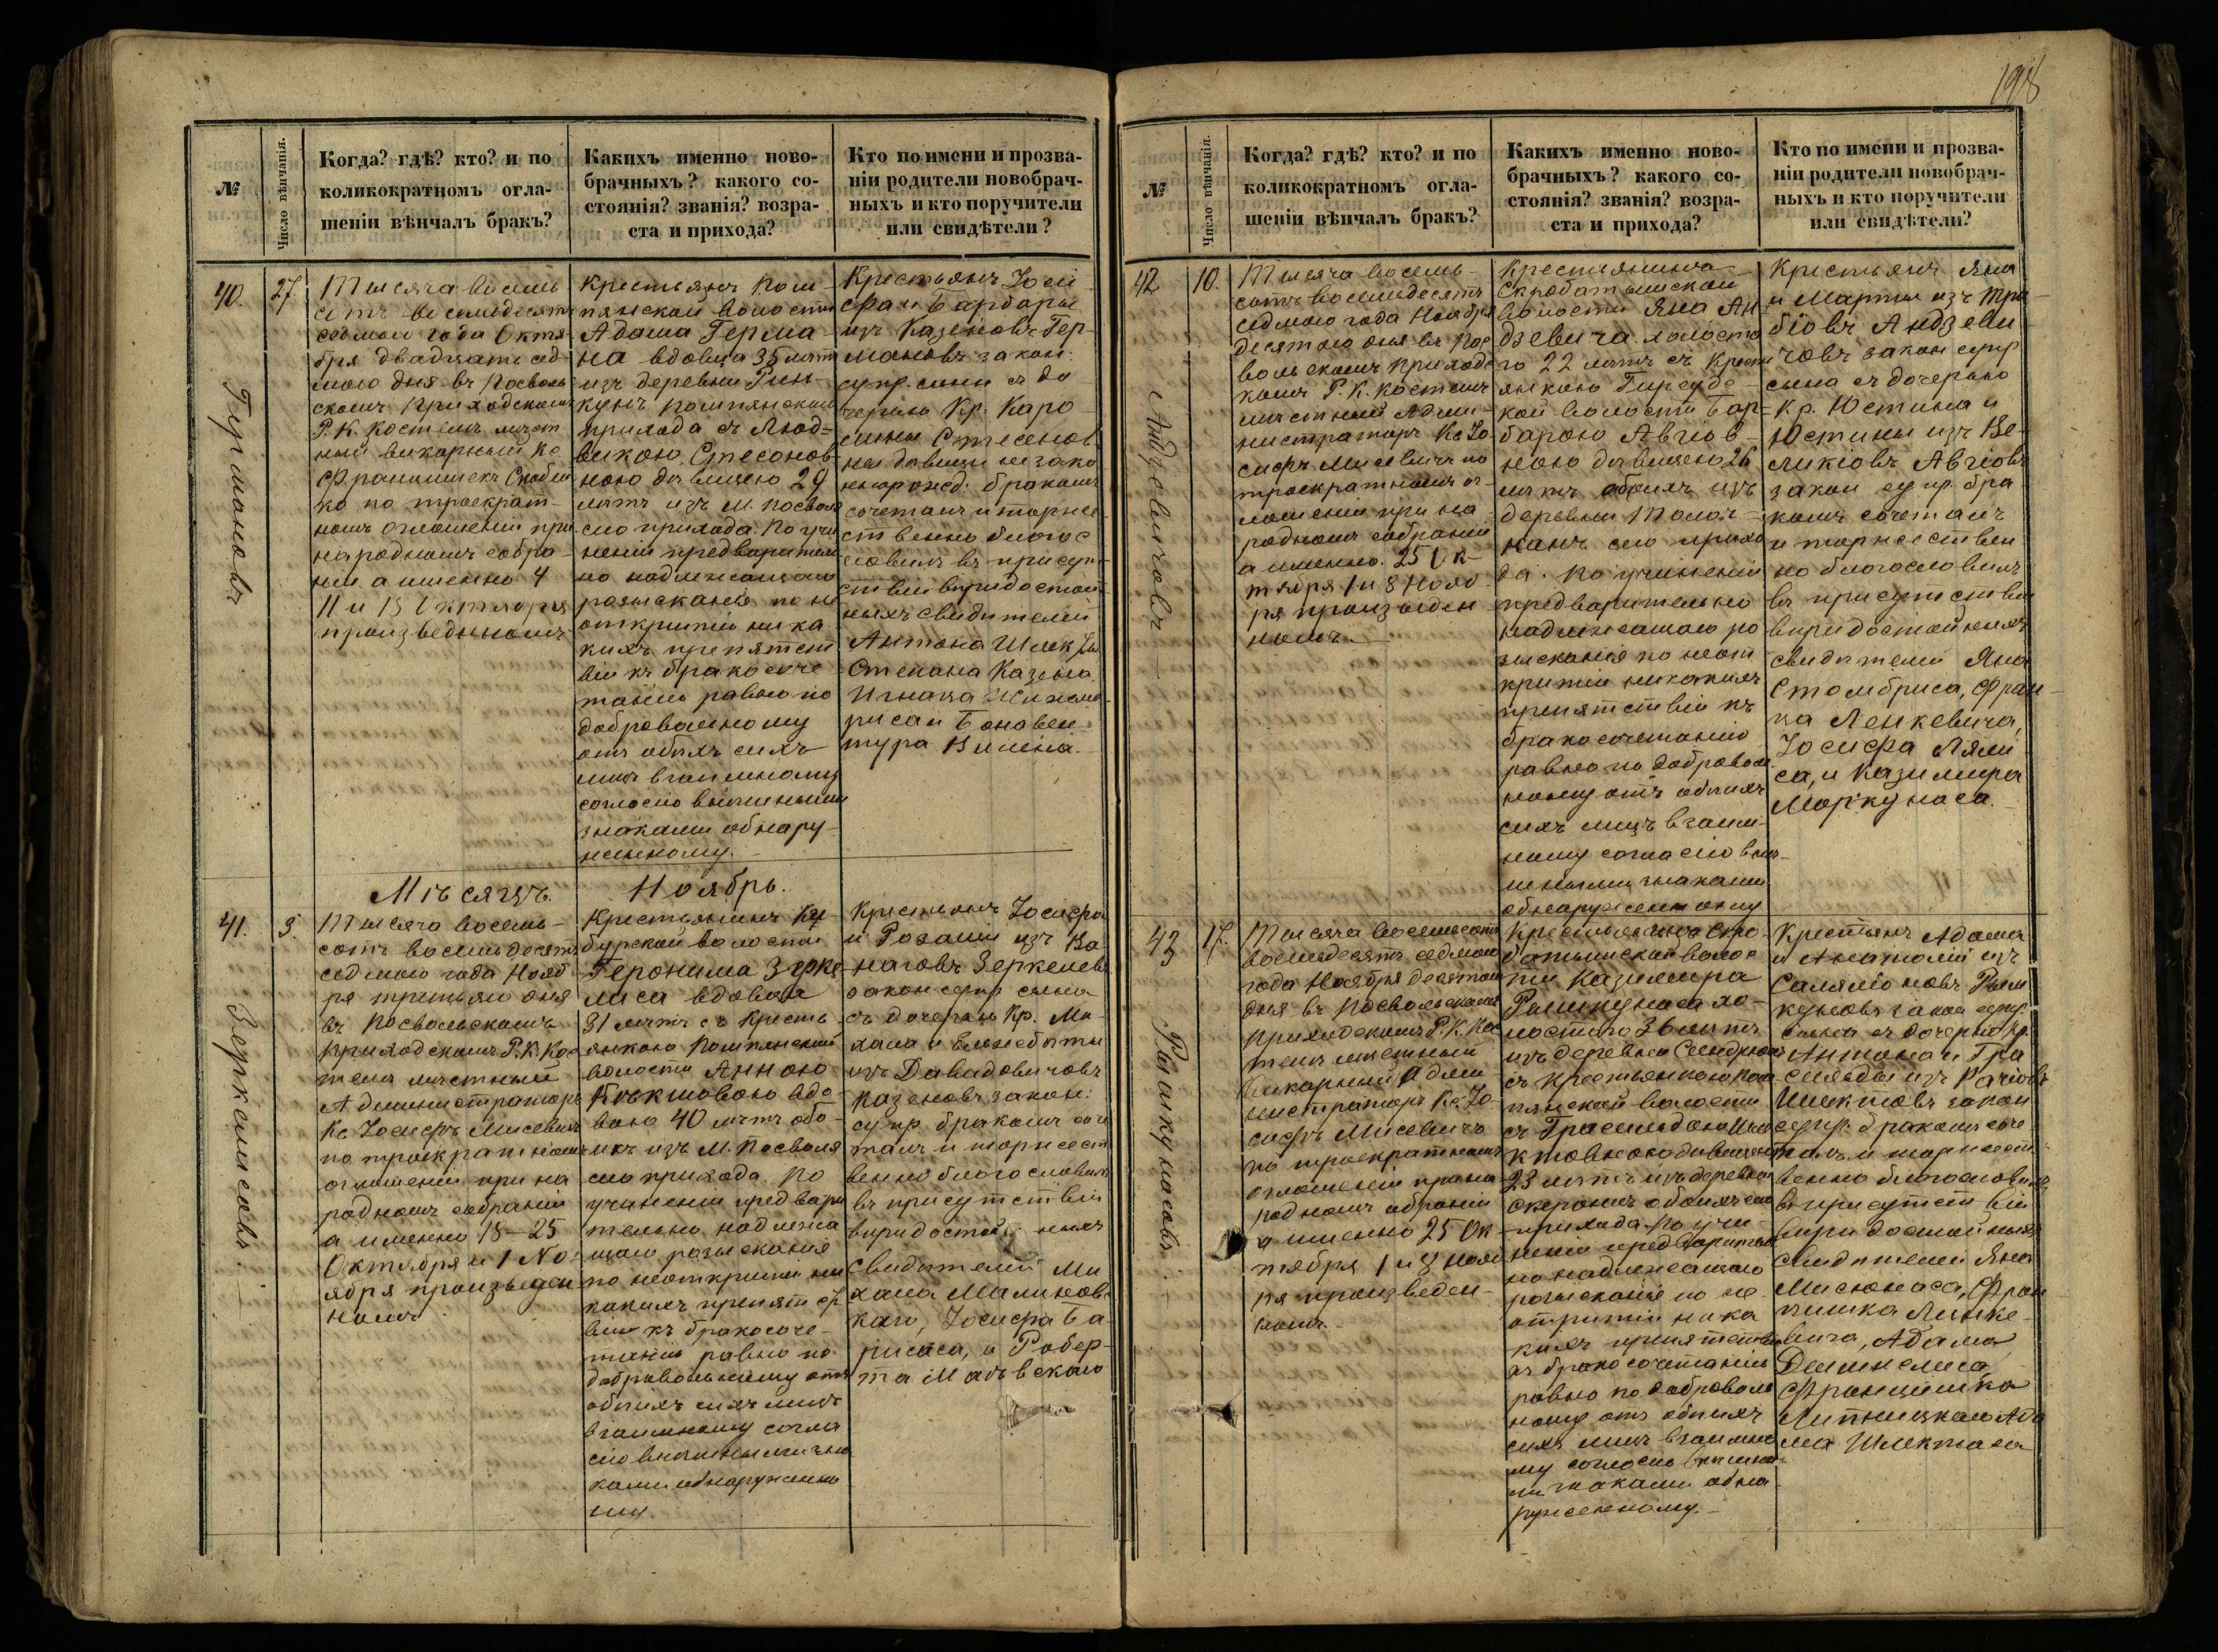 №
Число вѣнчанія.
Когда? гдѣ? кто? и по
коликократномъ огла-
шеніи вѣнчалъ бракъ?
Какихъ именно ново-
брачныхъ? какого со-
стоянія? званія? возра-
ста и прихода?
Кто по имени и прозва-
ніи родители новобрач-
ныхъ и кто поручители
или свидѣтели?
40.
27
Германовъ
Тысяча восемь
сотъ восемьдесятъ
седмаго года Октя
бря двадцать сед-
маго дня въ Посволь
скомъ Приходскомъ
Р. К. Костелѣ мѣст
ный викарный Кс
Францишекъ
ко по троекрат-
номъ оглашеніи при
народномъ собра-
ніи а именно 4
11 и 18 Октября
произведенномъ
Крестьянъ Пом-
пянской волости
Адама Герма-
на вдовца 35 лѣтъ
изъ деревни Рин-
кунъ Помпянскаго
прихода съ Люд-
викою Стесонов-
ною дѣвицею 29
лѣтъ изъ м. Посволя
сего прихода. По учи
неніи предваритель
но надлежащаго
розысканія по не
открытіи ника
кихъ препятст
вій къ бракосоче
танію равно по
добровольному
отъ обѣихъ сихъ
лицъ взаимному
согласію внѣшними
знаками обнару-
женному.
Крестьянъ Іоси
фа и Барбары
изъ Казеновъ Гер-
мановъ закон:
супр. сына съ до
черью Кр. Каро
лины Стесонов
ны дѣвицы незако
ннорожд: бракомъ
сочеталъ и торже
ственно благос
ловилъ въ присут
ствіи вѣридостой
ныхъ свидѣтелей
Антона Шлек
Степана Казена,
Игнаца
риса и Бонавен
тура
Мѣсяцъ Ноябрь.
41.
3.
Зеркелисовъ.
Тысяча восемь-
сотъ восемьдесятъ
седмаго года Нояб
ря третьяго дня
въ Посвольскомъ
Приходскомъ Р. К. Кос
телѣ мѣстный
Администраторъ
Кс Іосифъ Мисевичъ
по троекратномъ
оглашеніи при на
родномъ собраніи
а именно 18-25
Октября и 1 Но
ября произведен
номъ
Крестьянинъ
бурской волости
Геронима Зерке
лиса вдовца
31 лѣтъ съ кресть
янкою Помпянской
волости Анною
вдо-
вою 40 лѣтъ обо-
ихъ изъ М. Посволя
сего прихода. По
учиненіи предвари
тельно надлежа
щаго розысканія
по неоткрытіи ни
какихъ препятст
вій къ бракосоче-
танію равно по
добровольному отъ
обѣихъ сихъ лицъ
взаимному согла
сію внѣшними зна
ками обнаруженно
му.
Крестьянъ Іосифа
и Розаліи изъ Ва-
наговъ Зеркелисовъ
закон супр сына
съ дочерью Кр. Ми-
хала и Елисабеты
изъ Давидовичовъ
Казеновъ закон:
супр бракомъ соче
талъ и торжест
венно благословилъ
въ присутствіи
вѣридостойныхъ
свидѣтелей Ми
хала Малиновс
каго, Іосифа Ба
рисаса, и Робер-
та
198
№
Число вѣнчанія.
Когда? гдѣ? кто? и по
коликократномъ огла-
шеніи вѣнчалъ бракъ?
Какихъ именно ново-
брачныхъ? какого со-
стоянія? званія? возра-
ста и прихода?
Кто по имени и прозва-
ніи родители новобрач-
ныхъ и кто поручители
или свидѣтели?
42
10.
Андзевичовъ
Тысяча восемь-
сотъ восемьдесятъ
седмаго года Ноября
десятаго дня въ Пос
вольскомъ Приходс
комъ Р. К. Костелѣ
мѣстный Адми-
нистраторъ Кс Іо
сифъ Мисевичъ по
троекратномъ ог-
лашеніи при на
родномъ собраніи
а именно. 25 Ок-
тября 1 и 8 Нояб
ря произведен
номъ.
Крестьянина
Скробатышской
волости Яна Ан-
дзевича холоста
го 22 лѣтъ съ крест
янкою Гирсудс-
кой волости Бар-
барою Авгіов-
ною дѣвицею 26
лѣтъ обоихъ изъ
деревни
сего прихо
да. По учиненіи
предварительно
надлежащаго ро
зысканія по неот
крытіи никакихъ
препятствій къ
бракосочетанію
равно по доброволь
ному отъ обѣихъ
сихъ лицъ взаим-
ному согласію внѣ-
шними знаками
обнаруженному
Крестьянъ Яна
и Марты изъ Тра-
біовъ Андзеви
човъ закон супр
сына съ дочерью
Кр. Юстина и
Юстины изъ Ве-
ликіовъ Авгіовъ
закон супр. бра
комъ сочеталъ
и торжествен
но благословилъ
въ присутствіи
вѣридостойныхъ
свидѣтелей Яна
Стомбриса, Фран-
ца Ленкевича,
Іосифа Лями
са, и Казимира
Моркунаса.
43
17.
Рамкунасовъ.
Тысяча восемьсотъ
восемьдесятъ седмаго
года Ноября десятаго
дня въ Посвольскомъ
Приходскомъ Р. К. Кос
телѣ мѣстный
Викарный Адми
нистраторъ Кс. Іо
сифъ Мисевичъ
по троекратномъ
оглашеніи при на
родномъ собраніи
а именно 25 Ок
тября 1 и 8 Нояб
ря произведен-
номъ.
Крестьянина Скро
батышской волос
ти Казимира
Рамкунаса хо-
лостаго 36 лѣтъ
изъ деревни
съ крестьянкою Пом
пянской волости
съ Грасильдою Шле
ктовною дѣвицею
23 лѣтъ изъ деревни
обоихъ сего
прихода. По учи-
неніи предваритель
но надлежащаго
розысканія по не
открытіи ника
кихъ препятствій
къ бракосочетанію
равно по доброволь
ному отъ обѣихъ
сихъ лицъ взаимно
му согласію внѣшни
ми знаками обна
руженному.
Крестьянъ Адама
и Анатоліи изъ
Саламоновъ Рам
куновъ закон супр.
сына съ дочерью Кр.
Антона и Гра
сильды изъ
Шлектовъ закон
супр. бракомъ соче
талъ и торжест
венно благословилъ
въ присутствіи
вѣридостойныхъ
свидѣтелей Яна
Мисюнаса, Фран
цишка Линке
вича, Адама
Францишка
Липницкаго Ада
ма Шлектаса